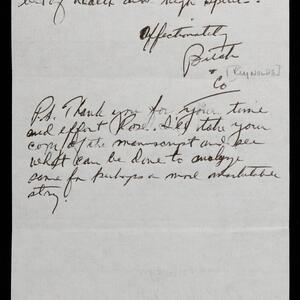 of health and high spirit.
Affectionately
Butch
+
Co
[REYNOLDS]
P.S. Thank you for your time
and effort Rose. I'll take your
copy of the manuscript and see
what can be done to
same for perhaps a more marketable
story.